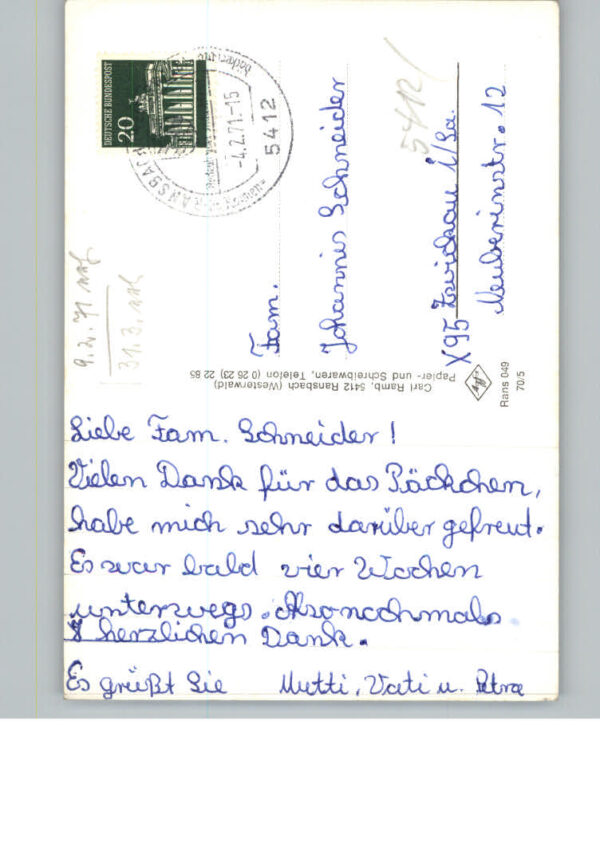 DEUTSCHE BUNDESPOST
20
RANSBACH
-4.2.71-15
5412
5412
9.2.71
31.3.
Fam.
Johannis Schneider
X95 Zwickau i/Sa.
Neuberinstr. 12
Carl Ramb, 5412 Ransbach (Westerwald)
Papier- und Schreibwaren, Telefon (0 26 23) 22 85
Agfa
Rans 049
70/5
Liebe Fam. Schneider!
Vielen Dank für das Päckchen,
habe mich sehr darüber gefreut.
Es war bald vier Wochen
unterwegs. Also nochmals
herzlichen Dank.
Es grüßt Sie Mutti, Vati u. Petra